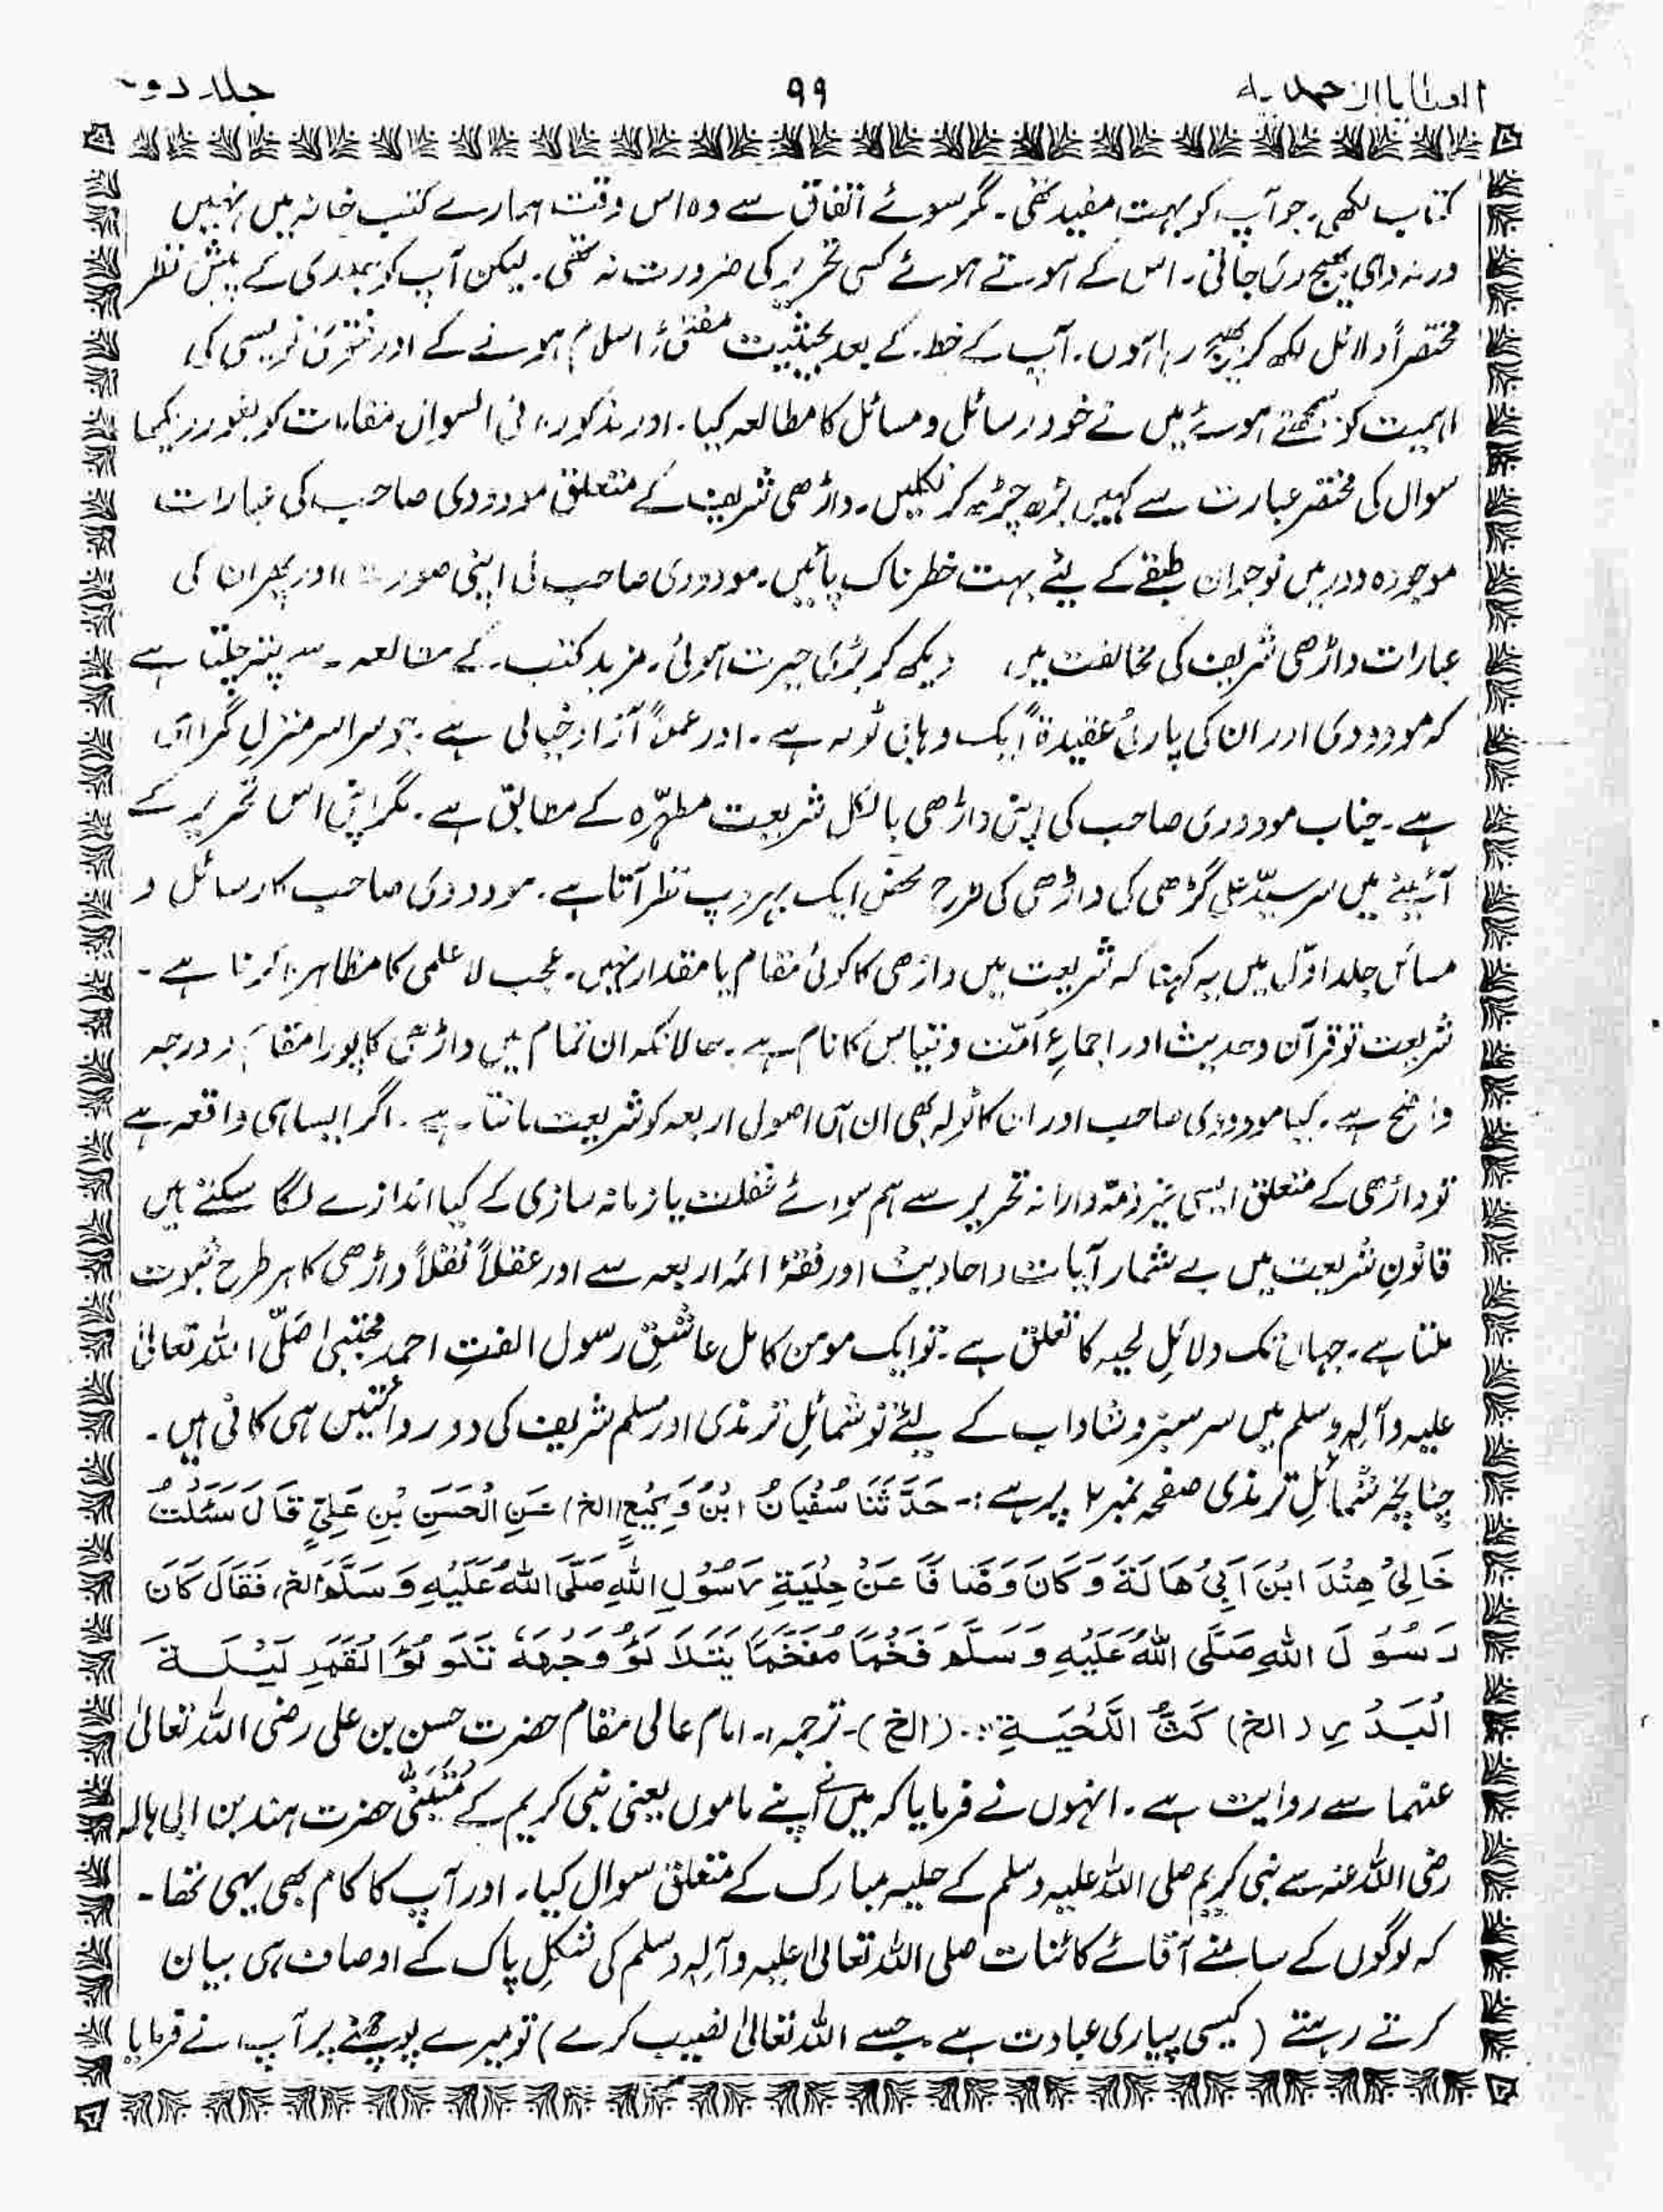 العطایا الاحمدیہ ۹۹ جلد دوم
کتاب لکھی۔ جو آپ کو بہت مفید تھی۔ مگر سوئے اتفاق سے وہ اس وقت ہمارے کتب خانہ میں نہیں
ورنہ وہی بھیج دی جاتی۔ اس کے ہوتے ہوئے کسی تحریر کی ضرورت نہ تھی۔ لیکن آپ کی کے پیش نظر
مختصراً دلائل لکھ کر بھیج رہا ہوں۔ آپ کے خط کے بعد بحیثیت مفتئ اسلام ہونے کے اور فتویٰ نویسی کی
اہمیت کو سمجھتے ہوئے میں نے خود رسائل و مسائل کا مطالعہ کیا۔ اور مذکورہ فی السوال مقامات کو بغور دیکھا
سوال کی مختصر عبارت سے کہیں بڑھ چڑھ کر نکلیں۔ داڑھی شریف کے متعلق مودودی صاحب کی عبارات
موجودہ دور میں نوجوان طبقے کے لیئے بہت خطرناک پائیں۔ مودودی صاحب کی اپنی صورت اور پھر ان کی
عبارات داڑھی شریف کی مخالفت میں دیکھ کر بڑی حیرت ہوئی۔ مزید کتب کے مطالعہ سے پتہ چلتا ہے
کہ مودودی اور ان کی پارٹی عقیدۃً ایک وہابی ٹولہ ہے۔ اور عملاً آزاد خیالی ہے۔ جو سراسر منزلِ گمراہی
ہے۔ جناب مودودی صاحب کی اپنی داڑھی بالکل شریعت مطہّرہ کے مطابق ہے۔ مگر اپنی اس تحریر کے
آئینے میں سرسیّد علی گڑھی کی داڑھی کی طرح محض ایک بہروپ نظر آتا ہے۔ مودودی صاحب کا رسائل و
مسائل جلد اوّل میں یہ کہنا کہ شریعت میں داڑھی کا کوئی مقام یا مقدار نہیں۔ عجب لاعلمی کا مظاہرہ کرنا ہے۔
شریعت تو قرآن وحدیث اور اجماعِ امّت و قیاس کا نام ہے۔ حالانکہ ان تمام میں داڑھی کا پورا مقام و درجہ
واضح ہے۔ کیا مودودی صاحب اور ان کا ٹولہ بھی ان ہی اصول اربعہ کو شریعت مانتا ہے۔ اگر ایسا ہی واقعہ ہے
تو داڑھی کے متعلق ایسی غیر ذمّہ دارانہ تحریر سے ہم سوائے غفلت یا زمانہ سازی کے کیا اندازے لگا سکتے ہیں
قانونِ شریعت میں بے شمار آیات و احادیث اور فقۂ ائمہ اربعہ سے اور عقلاً نقلاً داڑھی کا ہر طرح ثبوت
ملتا ہے۔ جہاں تک دلائلِ لحیہ کا تعلق ہے۔ تو ایک مومن کامل عاشقِ رسول الفتِ احمد مجتبیٰ صَلّی اللہ تعالیٰ
علیہ وآلہٖ وسلم میں سرسبز و شاداب کے لیئے تو شمائلِ ترمذی اور مسلم شریف کی دو روائتیں ہی کافی ہیں۔
چنانچہ شمائلِ ترمذی صفحہ نمبر ۲ پر ہے:۔ حَدَّثَنَا سُفْیَانُ ابْنُ وَکِیْعٍ (الخ) عَنِ الْحَسَنِ بْنِ عَلِیٍّ قَالَ سَئَلْتُ
خَالِیْ هِنْدَ ابْنَ اَبِیْ هَالَةَ وَکَانَ وَصَّافًا عَنْ حِلْیَةِ رَسُوْلِ اللهِ صَلَّی اللهُ عَلَیْهِ وَسَلَّمَ الخ، فَقَالَ کَانَ
رَسُوْلَ اللهِ صَلَّی اللهُ عَلَیْهِ وَسَلَّمَ فَخْمًا مُفَخَّمًا یَتَلَاءْلَؤُ وَجْهُهٗ تَلَوْلُؤَ الْقَمَرِ لَیْلَةَ
الْبَدْرِ (الخ) کَثُّ اللَّحْیَةِ ۔ (الخ)۔ ترجمہ:۔ امام عالی مقام حضرت حسن بن علی رضی اللہ تعالیٰ
عنہما سے روایت ہے۔ انہوں نے فرمایا کہ میں نے اپنے ماموں یعنی نبی کریم کے مُتَبَنّٰی حضرت ہند بن ابی ہالہ
رضی اللہ عنہ سے نبی کریم صلی اللہ علیہ وسلم کے حلیہ مبارک کے متعلق سوال کیا۔ اور آپ کا کام بھی یہی تھا۔
کہ لوگوں کے سامنے آقائے کائنات صلی اللہ تعالیٰ علیہ وآلہٖ وسلم کی شکلِ پاک کے اوصاف ہی بیان
کرتے رہتے (کیسی پیاری عبادت ہے جسے اللہ تعالیٰ نصیب کرے) تو میرے پوچھنے پر آپ نے فرمایا